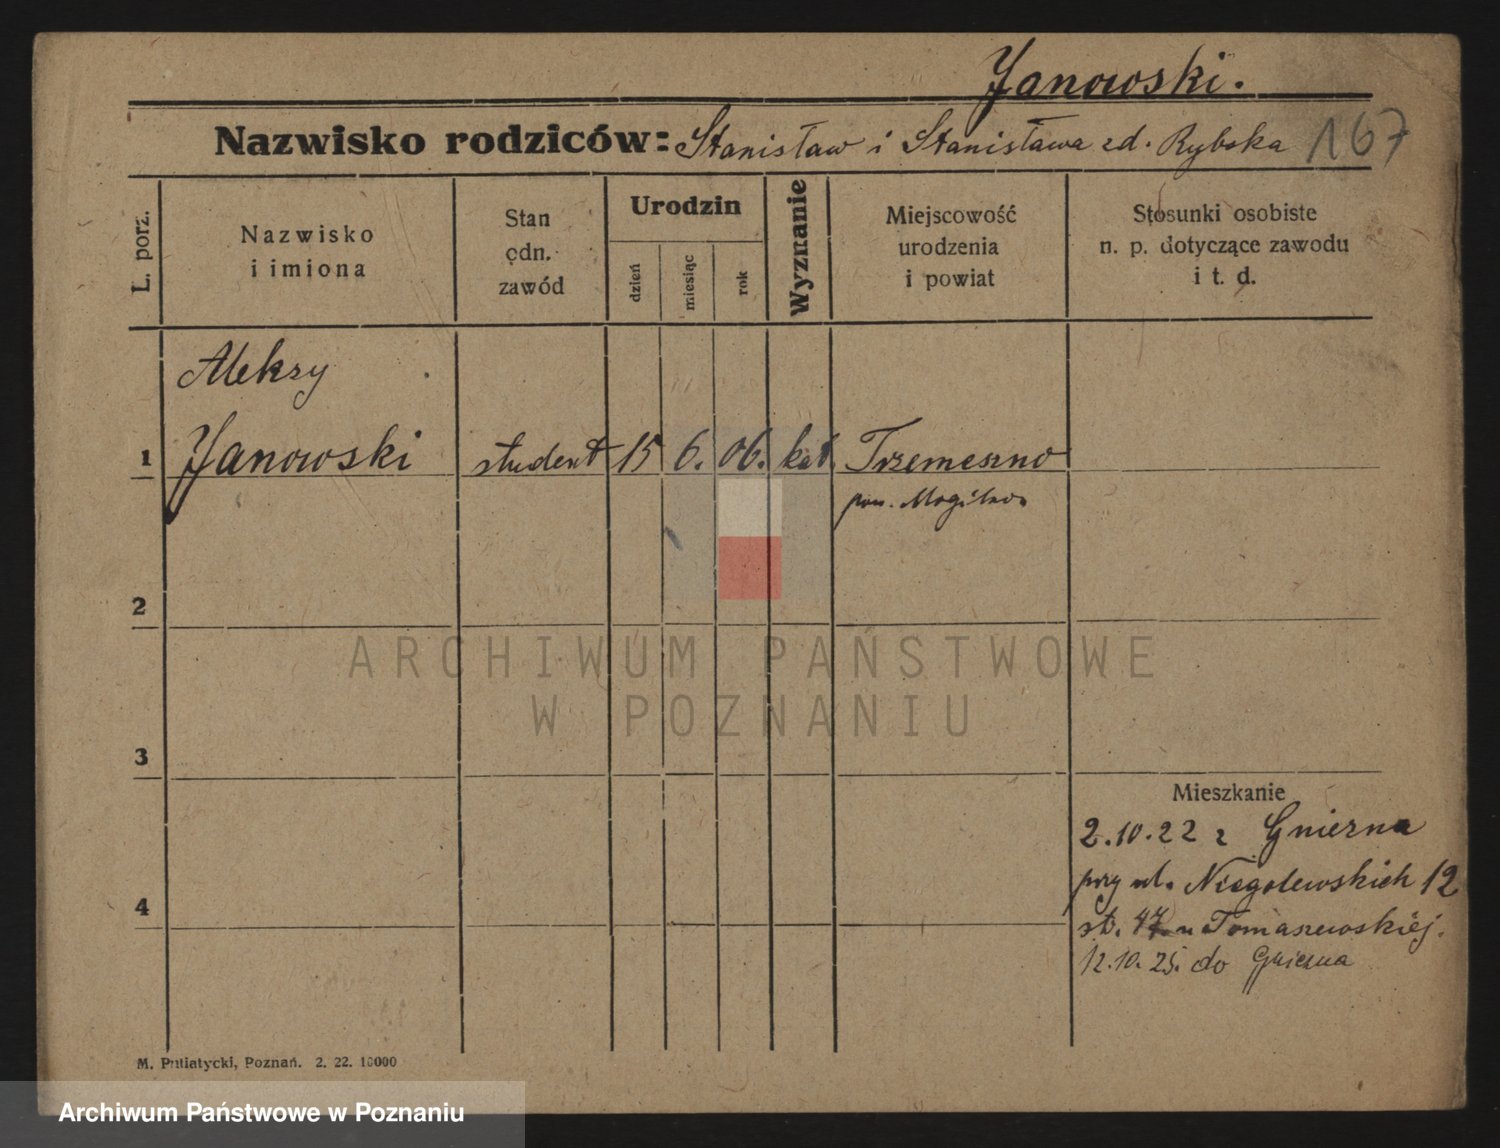 Janowski.
Nazwisko rodziców: Stanisław i Stanisława zd. Rybska 167
L. porz.
Nazwisko
i imiona
Stan
odn.
zawód
Urodzin
dzień
miesiąc
rok
Wyznanie
Miejscowość
urodzenia
i powiat
Stosunki osobiste
n. p. dotyczące zawodu
i t. d.
Aleksy
1 Janowski student 15 6. 06. kat. Trzemeszno
pow. Mogilno
2
ARCHIWUM PAŃSTWOWE
W POZNANIU
3
Mieszkanie
2.10.22 z Gniezna
przy ul. Niegolewskich 12
st. 47. u Tomaszewskiéj.
12.10.25. do Gniezna
4
M. Putiatycki, Poznań. 2. 22. 10000
Archiwum Państwowe w Poznaniu